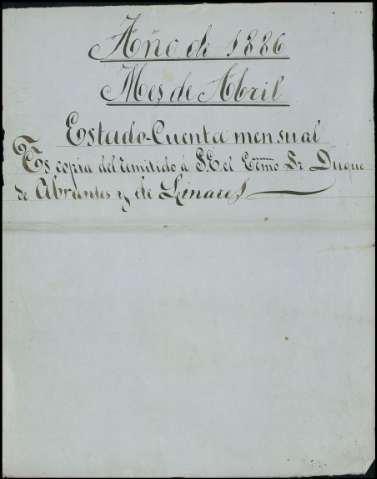 Año de 1886
Mes de Abril
Estado-Cuenta mensual
Es copia del remitido á S.E. el Exmo Sr Duque
de Abrantes y de Linares